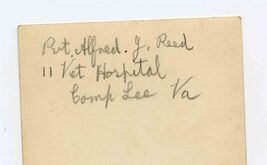 Pvt. Alfred. J. Reed
11 Vet Hospital
Camp Lee Va